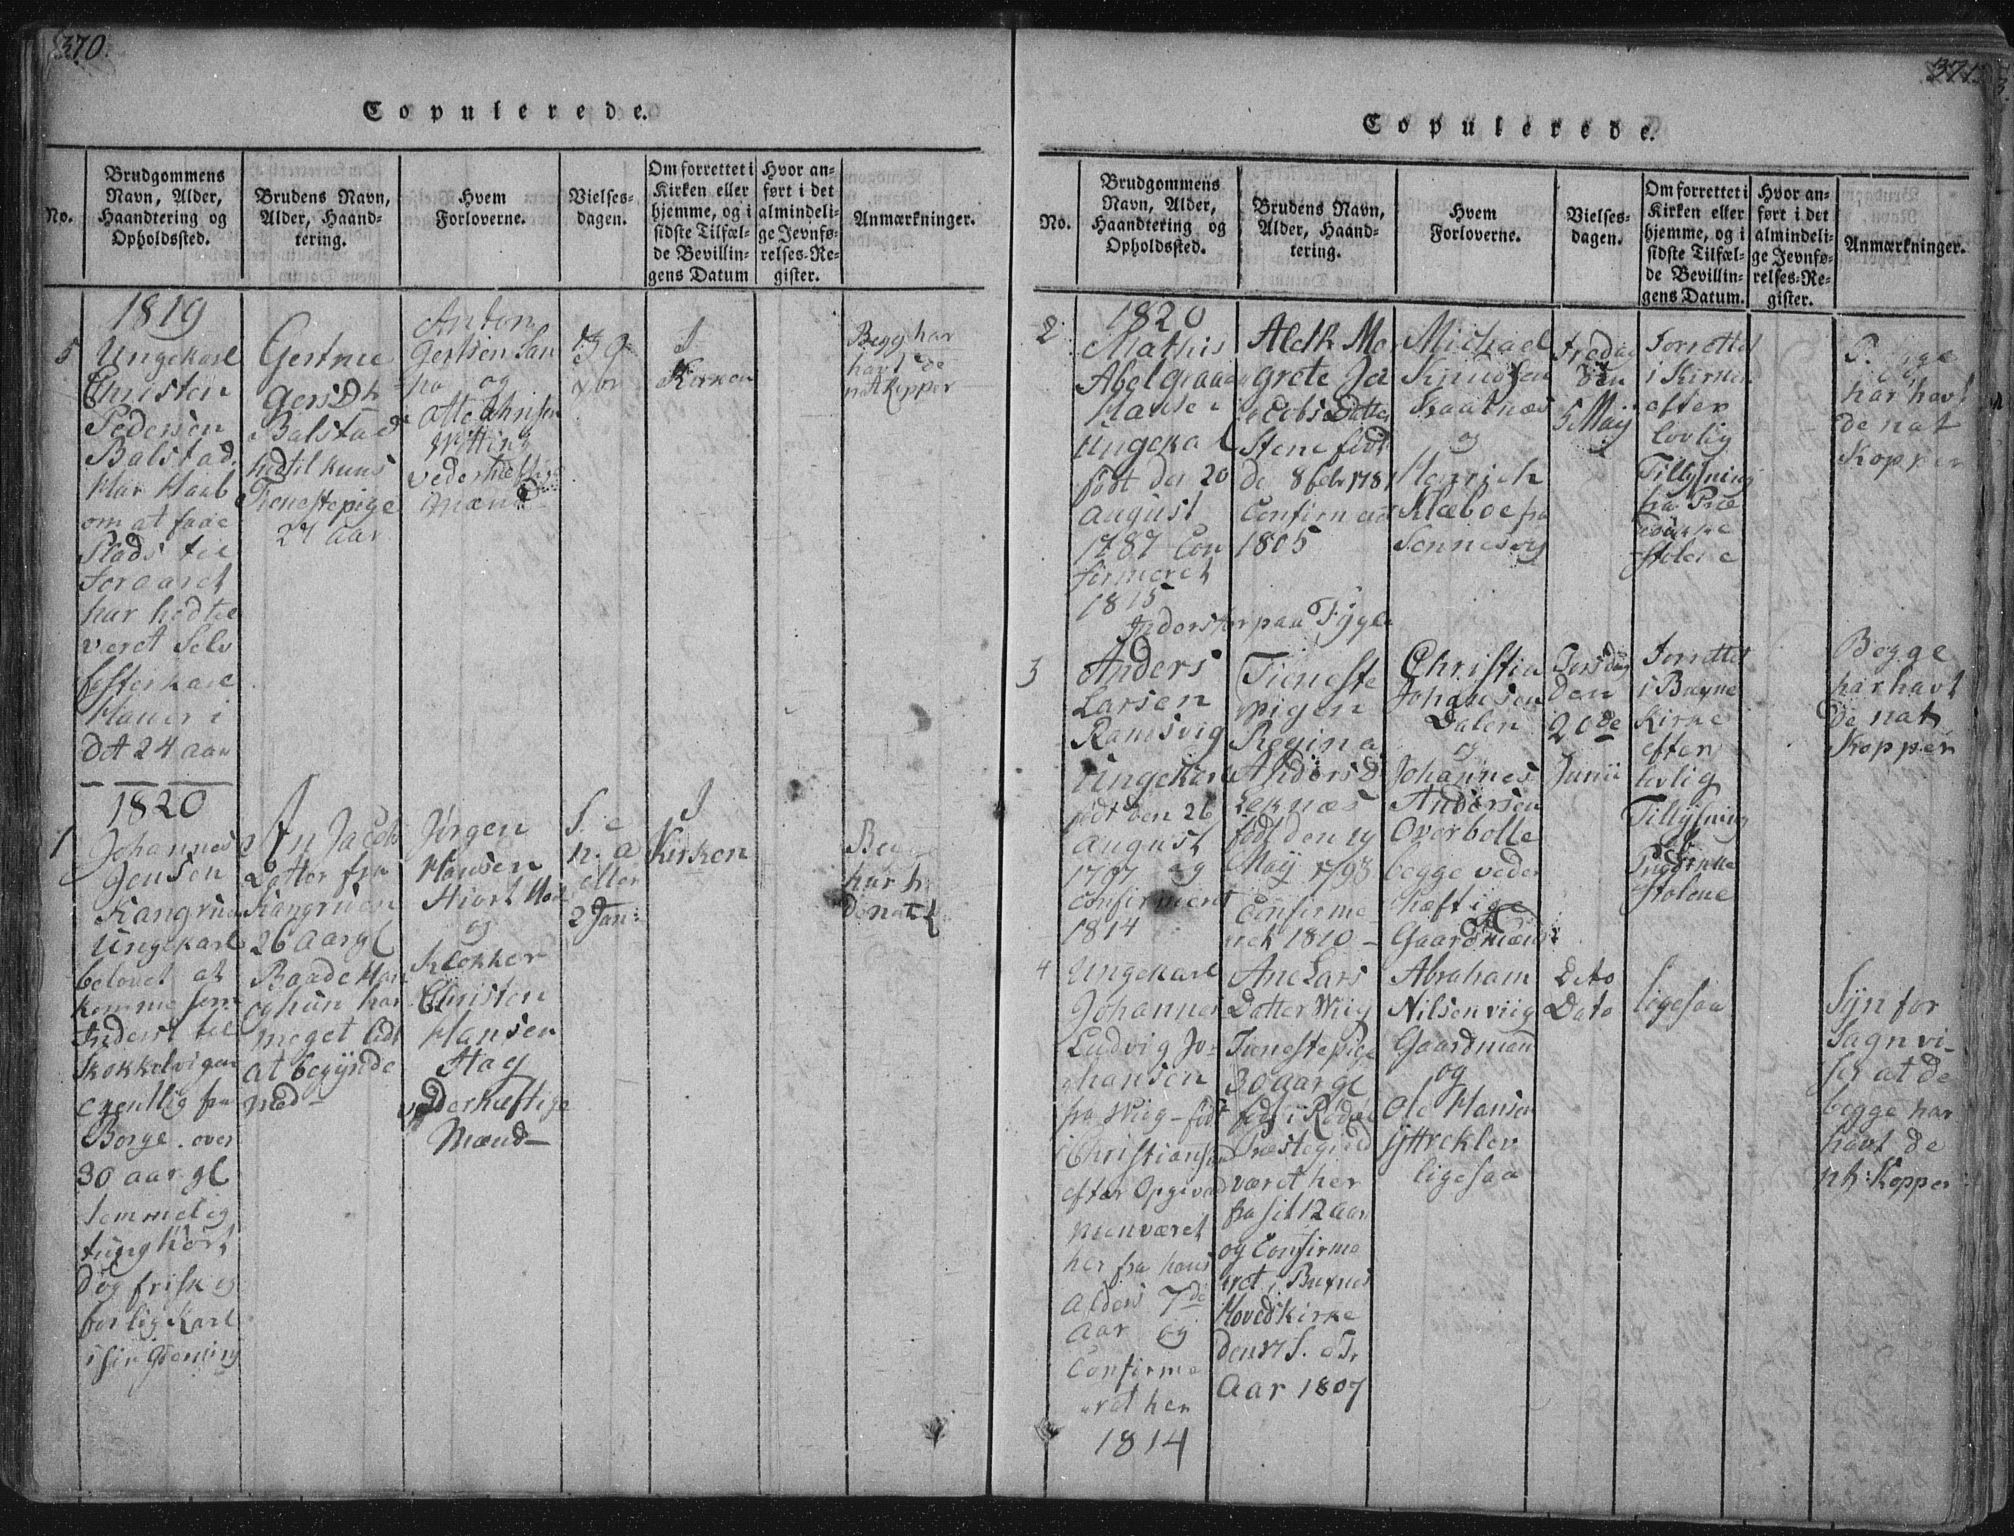 370.
Copulerede.
No.
Brudgommens
Navn, Alder,
Haandtering og
Opholdssted.
Brudens Navn,
Alder, Haand-
tering.
Hvem
Forloverne.
Vielses-
dagen.
Om forrettet i
Kirken eller
hjemme, og i
sidste Tilfæl-
de Bevillin-
gens Datum
Hvor an-
ført i det
almindeli-
ge Jevnfø-
relses-Re-
gister.
Anmærkninger.
1819
5
Ungekarl
Christen
Pedersen
Balstad.
Har Haab
om at faae
Plads til
Foraaret
har hedtil
været Selv
fosterkarl
Han er i
det 24 Aar
Gertrue
Gersdtr
Balstad
hidtil huus
Tienestepige
27 aar
Anton
Gertsen
og
Wetting
vederhæftige
Mænd
I
Kirken
Begge har
havt de
nat kopper
1820
1
Johannes
Jensen
Kangruen
Ungekarl
belovet at
komme som
Inderst til
Skokkelvigen
eventlig fra
Borge. over
30 aar gl
temmelig
tunghört
dog frisk og
før lig Karl
i sin Gierning
An Jacobs
Dotter fra
Kangruen
26 Aar gl
Baade Han
og hun har
meget lidt
at begynde
med-
Jörgen
Hansen
Hiort
og
Klokker
Christen
Hansen
Hag
vederhæftige
Mænd-
eller
2 Jan:
I
Kirken
har h
de nat
371.
Copulerede.
No.
Brudgommens
Navn, Alder,
Haandtering og
Opholdssted.
Brudens Navn,
Alder, Haand-
tering.
Hvem
Forloverne.
Vielses-
dagen.
Om forrettet i
Kirken eller
hjemme, og i
sidste Tilfæl-
de Bevillin-
gens Datum.
Hvor an-
ført i det
almindeli-
ge Jevnfø-
relses-Re-
gister.
Anmærkninger.
1820
2
Mathis
Abelgaard
Hansen
Ungekarl
født den 20
August
1787 Con
firmeret
1815
Inderster paa Fygle
Aleth Ma
grete Ja
cobs Datter
Stene født
de 8 febr 1781
Confirmeret
1805
Michael
Knudsen
og
Henrich
Klæboe fra
Sennesvig
fredag
den
5 Maij
Forrettet
i Kirken
efter
lovlig
Tillysning
fra Præ
dikke
stolene
har havt
de nat
Kopper
3
Anders
Larsen
Ramsvig
Ungekarl
født den 26
August
1797 og
Confirmeret
1814
Tieneste
pigen
Regina
Anders D
Leknæs
født den 19
Maij 1793
Confirme-
ret 1810-
Christen
Johansen
Dalen
og
Johannes
Andersen
Overbolle
begge veder
hæftige
Gaardmænd
Torsdag
den
20de
Junii
Forrettet
i Buxne
Kirke
efter
lovlig
Tillysning
fra
Prædikke
stolene
Begge
har havt
de nat
Kopper
4
Ungekarl
Johannes
Ludvig Jo-
hansen
fra Wiig-født
i Christiansund
efter Opgivend
men været
her fra hans
Alders 7de
Aar og
Confirme
ret her
1814
Ane Lars
Datter Wiig
Tienestepige
30 aar gl
fød i Rødøe
Præstegield
været her
fra sit 12 Aar
og Confirme
ret i Buxnes
Hovedkirke
den 17 S. e Tr
Aar 1807
Abraham
Nilsen viig
Gaardmand
og
Ole Hansen
Ytterklev
ligesaa
Dito
Dato
ligesaa
Syn for
Sagn vi-
ser at de
begge har
havt de
nt: Kopper